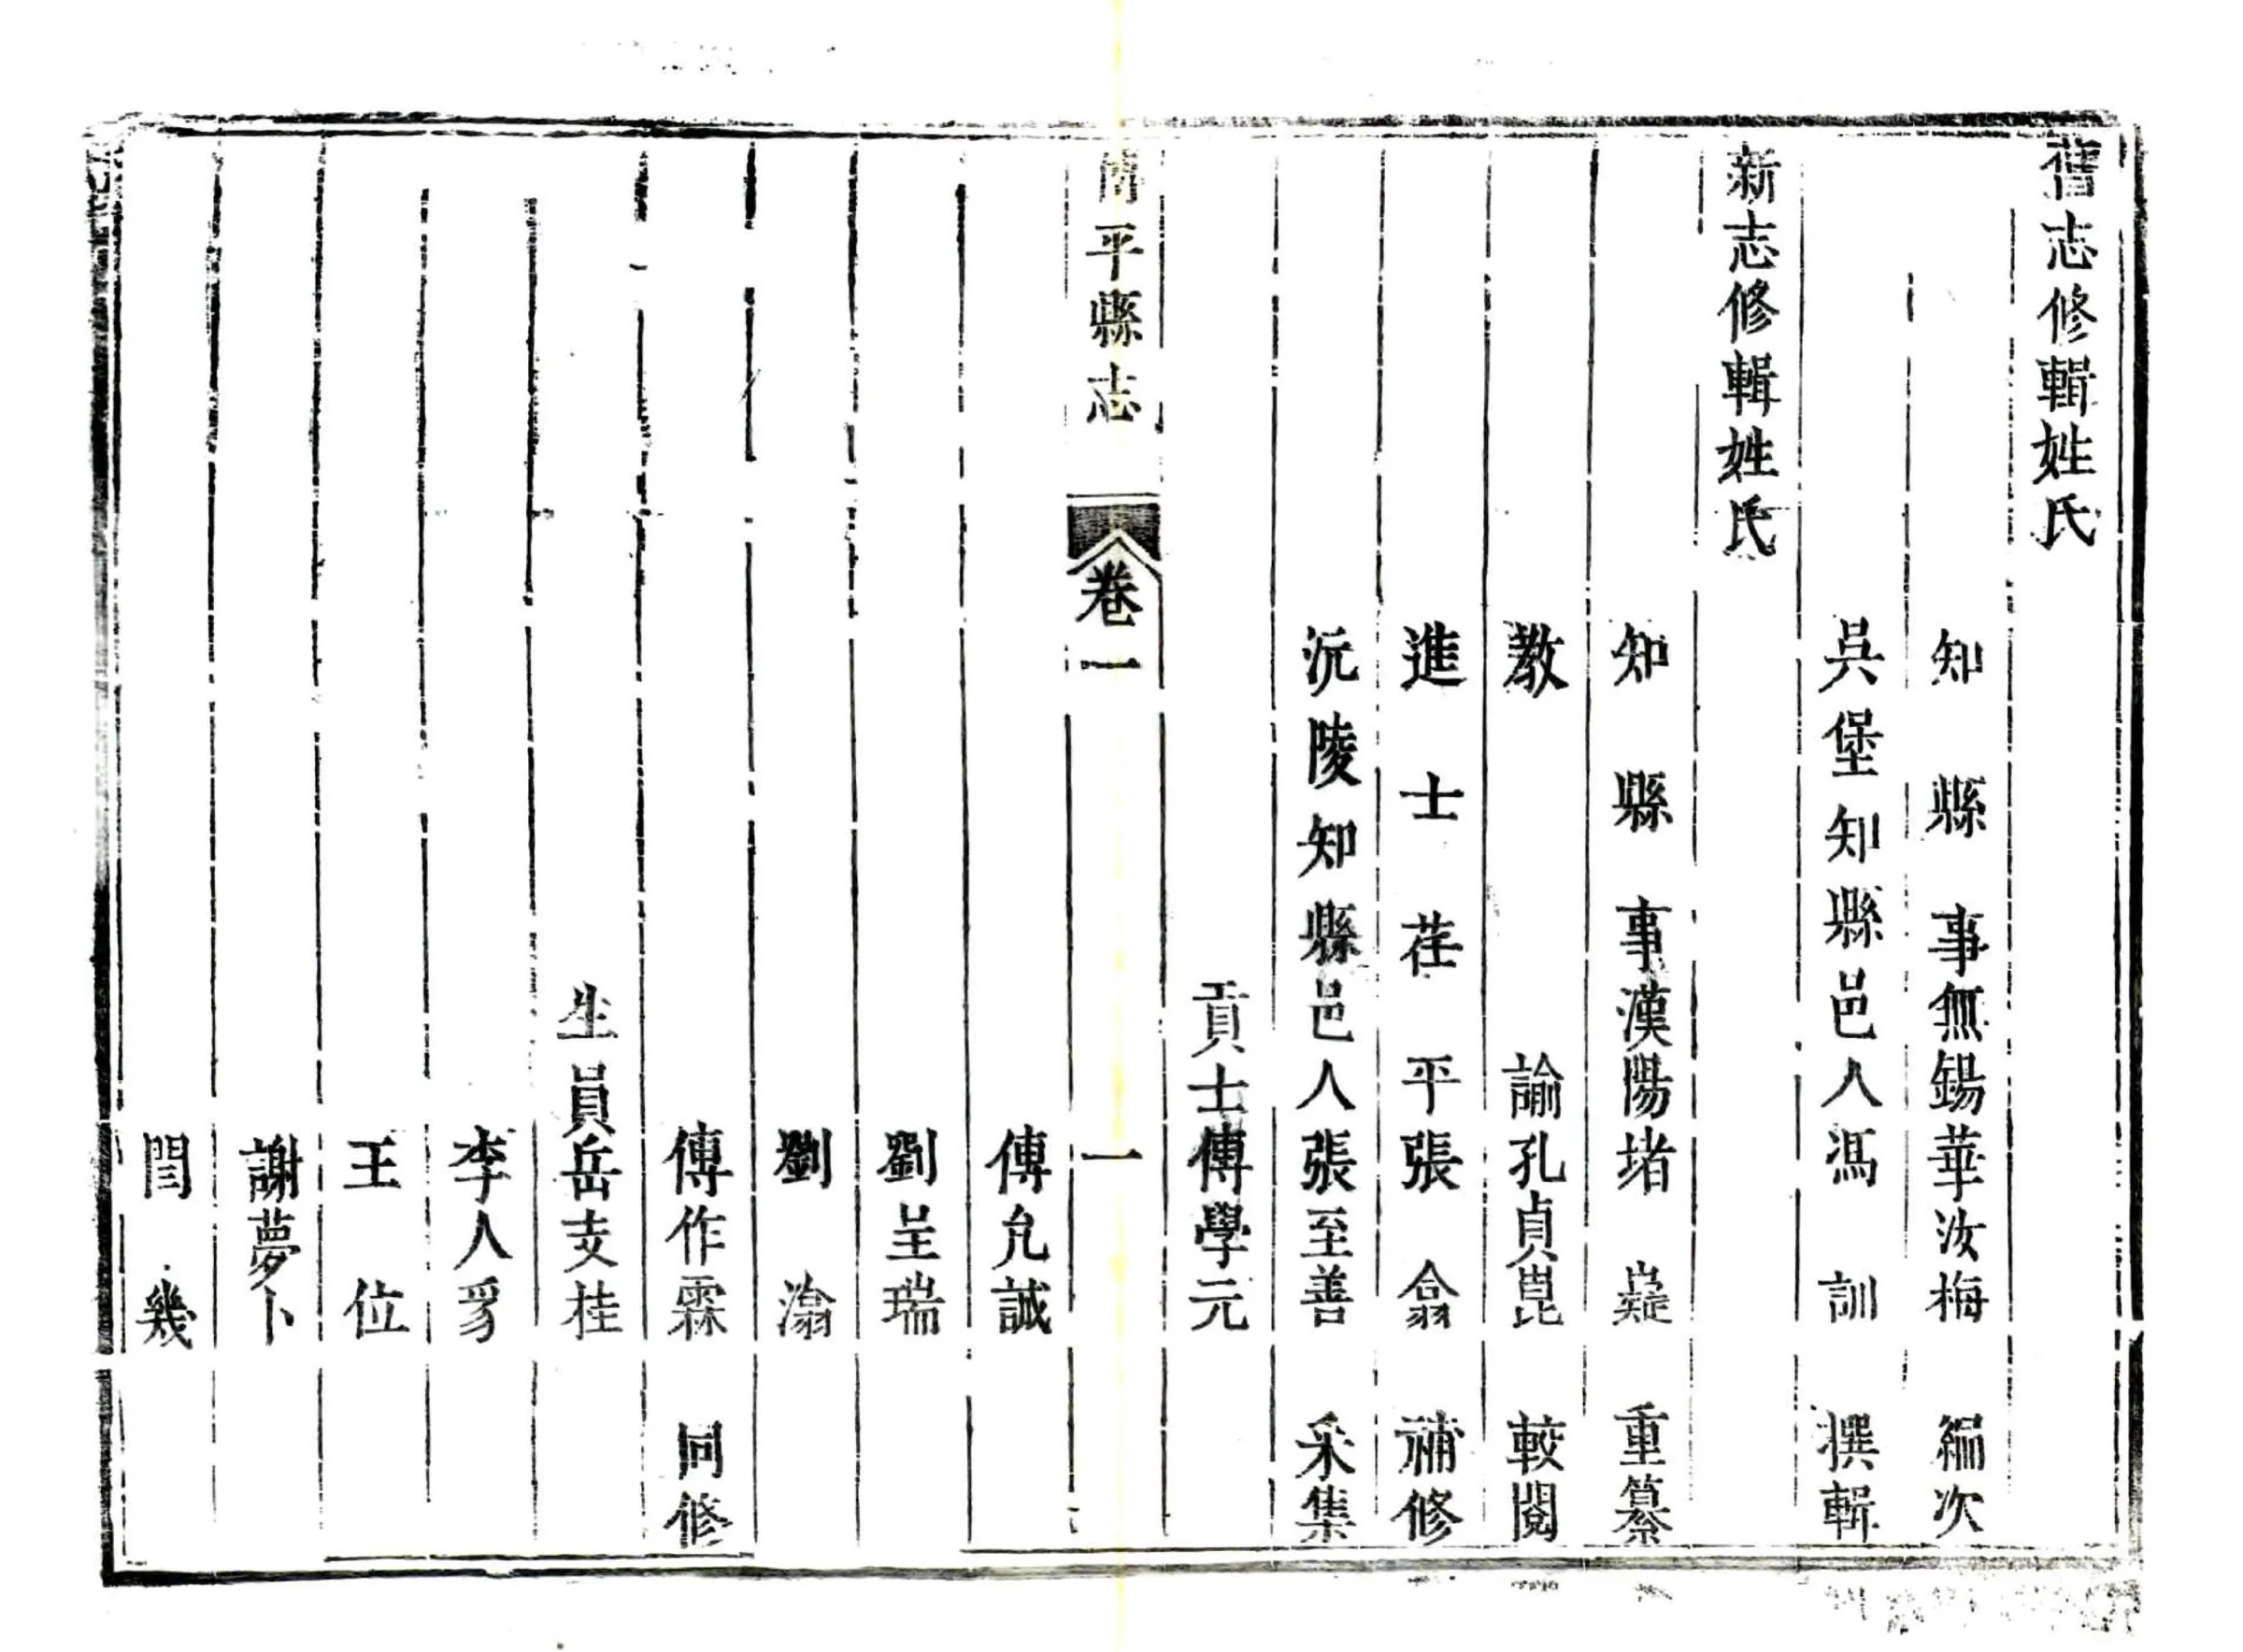 舊志修輯姓氏
知縣事無錫華汝梅編次
吳堡知縣邑人馮訓撰輯
新志修輯姓氏
知縣事漢陽堵嶷重纂
教諭孔貞崑較閱
進士茌平張翕補修
沅陵知縣邑人張至善采集
貢士傅學元
平縣志 卷一 一
傅允誠
劉呈瑞
劉滃
傅作霖同修
生員岳支桂
李人豸
王位
謝夢卜
閆幾